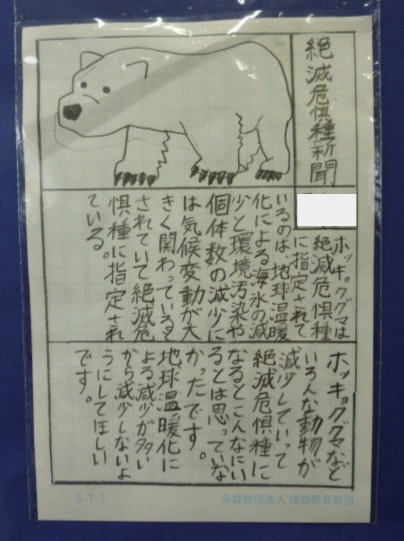 絶滅危惧種新聞
ホッキョクグマは
絶滅危惧種
に指定されて
いるのは、地球温暖
化による海氷の減
少と環境汚染や
個体数の減少に
は気候変動が大
きく関わっていると
されていて絶滅危
惧種に指定され
ている。
ホッキョクグマなど
いろんな動物が
減少していって
絶滅危惧種に
なるとこんなにい
るとは思っていな
かったです。
地球温暖化に
よる減少が多い
から減少しないよ
うにしてほしい
です。
公益財団法人 理想教育財団